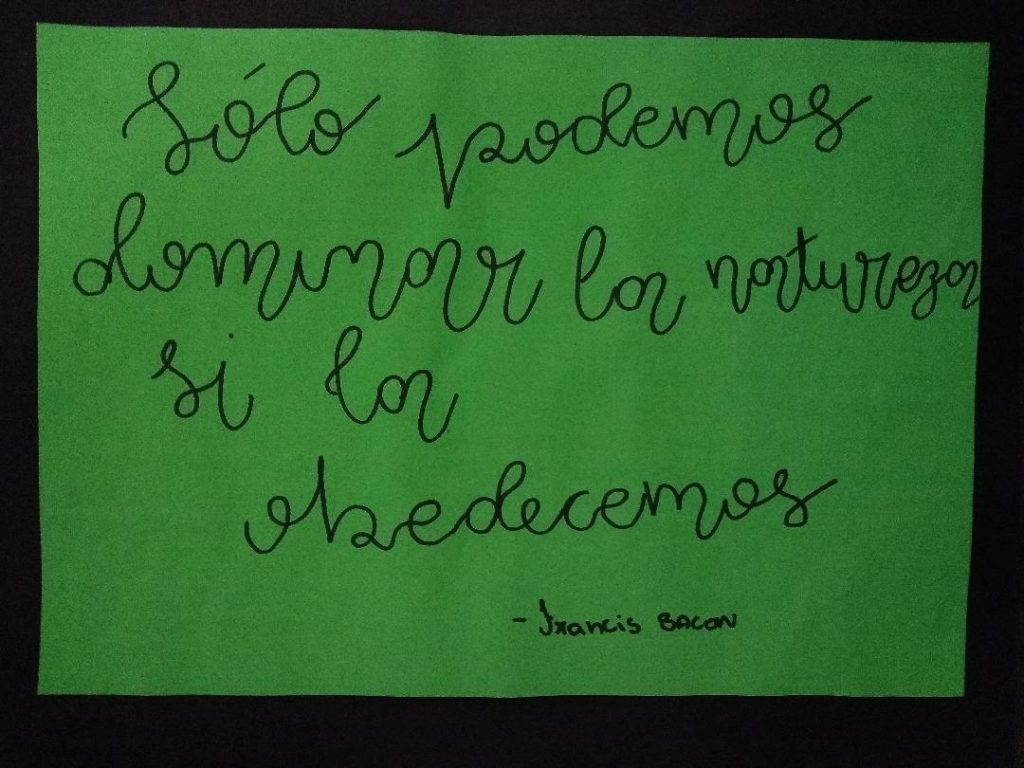 Sólo podemos
dominar la natureza
si la
obedecemos
- Francis BACON